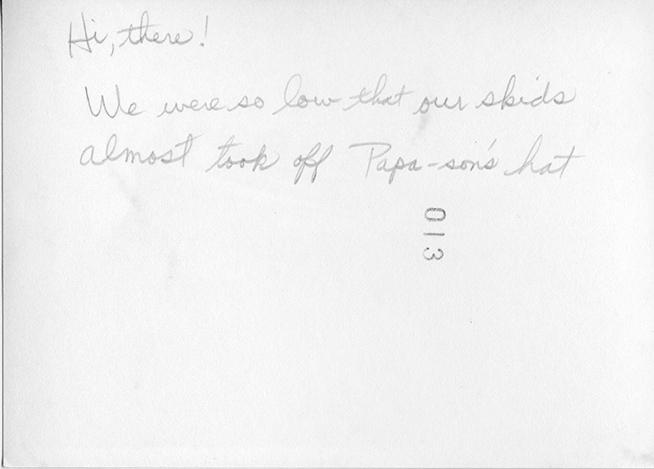 Hi, there!
We were so low that our skids
almost took off Papa-son's hat
013